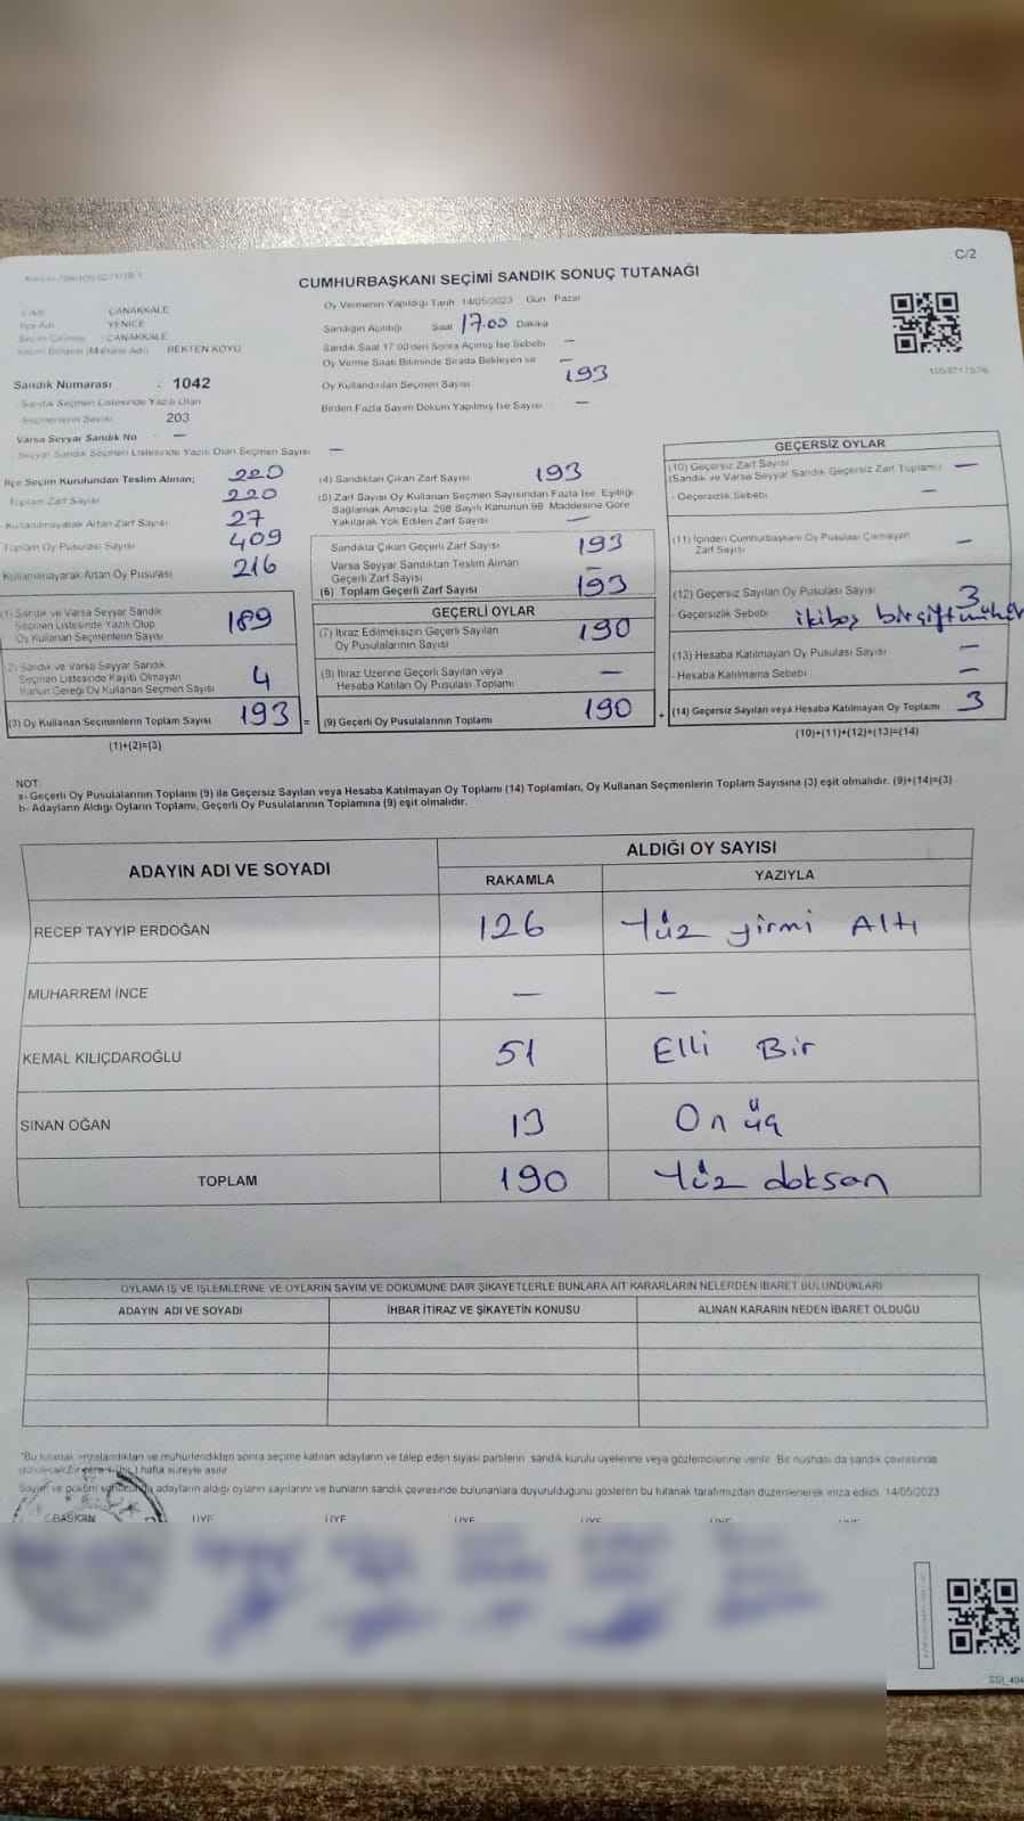 C/2
CUMHURBAŞKANI SEÇİMİ SANDIK SONUÇ TUTANAĞI
ÇANAKKALE
YENİCE
ÇANAKKALE
BEKTEN KÖYÜ
Oy Vermenin Yapıldığı Tarih 14/05/2023 Gün Pazar
Sandığın Açıldığı Saat 17.00 Dakika
Sandık Saat 17.00'den Sonra Açılmış İse Sebebi —
Oy Verme Saati Bitiminde Sırada Bekleyen —
Oy Kullandırılan Seçmen Sayısı 193
Birden Fazla Sayım Döküm Yapılmış İse Sayısı —
Sandık Numarası : 1042
Sandık Seçmen Listesinde Yazılı Olan
Seçmenlerin Sayısı 203
Varsa Seyyar Sandık No —
Seyyar Sandık Seçmen Listesinde Yazılı Olan Seçmen Sayısı —
İlçe Seçim Kurulundan Teslim Alınan; 220
Toplam Zarf Sayısı 220
Kullanılmayarak Artan Zarf Sayısı 27
Toplam Oy Pusulası Sayısı 409
Kullanılmayarak Artan Oy Pusulası 216
(1) Sandık ve Varsa Seyyar Sandık
Seçmen Listesinde Yazılı Olup
Oy Kullanan Seçmenlerin Sayısı 189
(2) Sandık ve Varsa Seyyar Sandık
Seçmen Listesinde Kayıtlı Olmayan
Kanun Gereği Oy Kullanan Seçmen Sayısı 4
(3) Oy Kullanan Seçmenlerin Toplam Sayısı 193 =
(1)+(2)=(3)
(4) Sandıktan Çıkan Zarf Sayısı 193
(5) Zarf Sayısı Oy Kullanan Seçmen Sayısından Fazla İse, Eşitliği
Sağlamak Amacıyla; 298 Sayılı Kanunun 98. Maddesine Göre
Yakılarak Yok Edilen Zarf Sayısı —
Sandıkta Çıkan Geçerli Zarf Sayısı 193
Varsa Seyyar Sandıktan Teslim Alınan
Geçerli Zarf Sayısı —
(6) Toplam Geçerli Zarf Sayısı 193
GEÇERLİ OYLAR
(7) İtiraz Edilmeksizin Geçerli Sayılan
Oy Pusulalarının Sayısı 190
(8) İtiraz Üzerine Geçerli Sayılan veya
Hesaba Katılan Oy Pusulası Toplamı —
(9) Geçerli Oy Pusulalarının Toplamı 190 +
GEÇERSİZ OYLAR
(10) Geçersiz Zarf Sayısı
(Sandık ve Varsa Seyyar Sandık Geçersiz Zarf Toplamı) —
- Geçersizlik Sebebi —
(11) İçinden Cumhurbaşkanı Oy Pusulası Çıkmayan
Zarf Sayısı —
(12) Geçersiz Sayılan Oy Pusulası Sayısı 3
- Geçersizlik Sebebi ikiboş birçift mühür
(13) Hesaba Katılmayan Oy Pusulası Sayısı —
- Hesaba Katılmama Sebebi —
(14) Geçersiz Sayılan veya Hesaba Katılmayan Oy Toplamı 3
(10)+(11)+(12)+(13)=(14)
NOT:
a- Geçerli Oy Pusulalarının Toplamı (9) ile Geçersiz Sayılan veya Hesaba Katılmayan Oy Toplamı (14) Toplamları, Oy Kullanan Seçmenlerin Toplam Sayısına (3) eşit olmalıdır. (9)+(14)=(3)
b- Adayların Aldığı Oyların Toplamı, Geçerli Oy Pusulalarının Toplamına (9) eşit olmalıdır.
ADAYIN ADI VE SOYADI
ALDIĞI OY SAYISI
RAKAMLA YAZIYLA
RECEP TAYYİP ERDOĞAN 126 Yüz yirmi Altı
MUHARREM İNCE — —
KEMAL KILIÇDAROĞLU 51 Elli Bir
SİNAN OĞAN 13 On üç
TOPLAM 190 Yüz doksan
OYLAMA İŞ VE İŞLEMLERİNE VE OYLARIN SAYIM VE DÖKÜMÜNE DAİR ŞİKAYETLERLE BUNLARA AİT KARARLARIN NELERDEN İBARET BULUNDUKLARI
ADAYIN ADI VE SOYADI İHBAR İTİRAZ VE ŞİKAYETİN KONUSU ALINAN KARARIN NEDEN İBARET OLDUĞU
"Bu tutanak imzalandıktan ve mühürlendikten sonra seçime katılan adayların ve talep eden siyasi partilerin sandık kurulu üyelerine veya gözlemcilerine verilir. Bir nüshası da sandık çevresinde
hafta süreyle asılır.
Sayım ve döküm sonucunda adayların aldığı oyların sayılarını ve bunların sandık çevresinde bulunanlara duyurulduğunu gösteren bu tutanak tarafımızdan düzenlenerek imza edildi. 14/05/2023
BAŞKAN ÜYE ÜYE ÜYE ÜYE